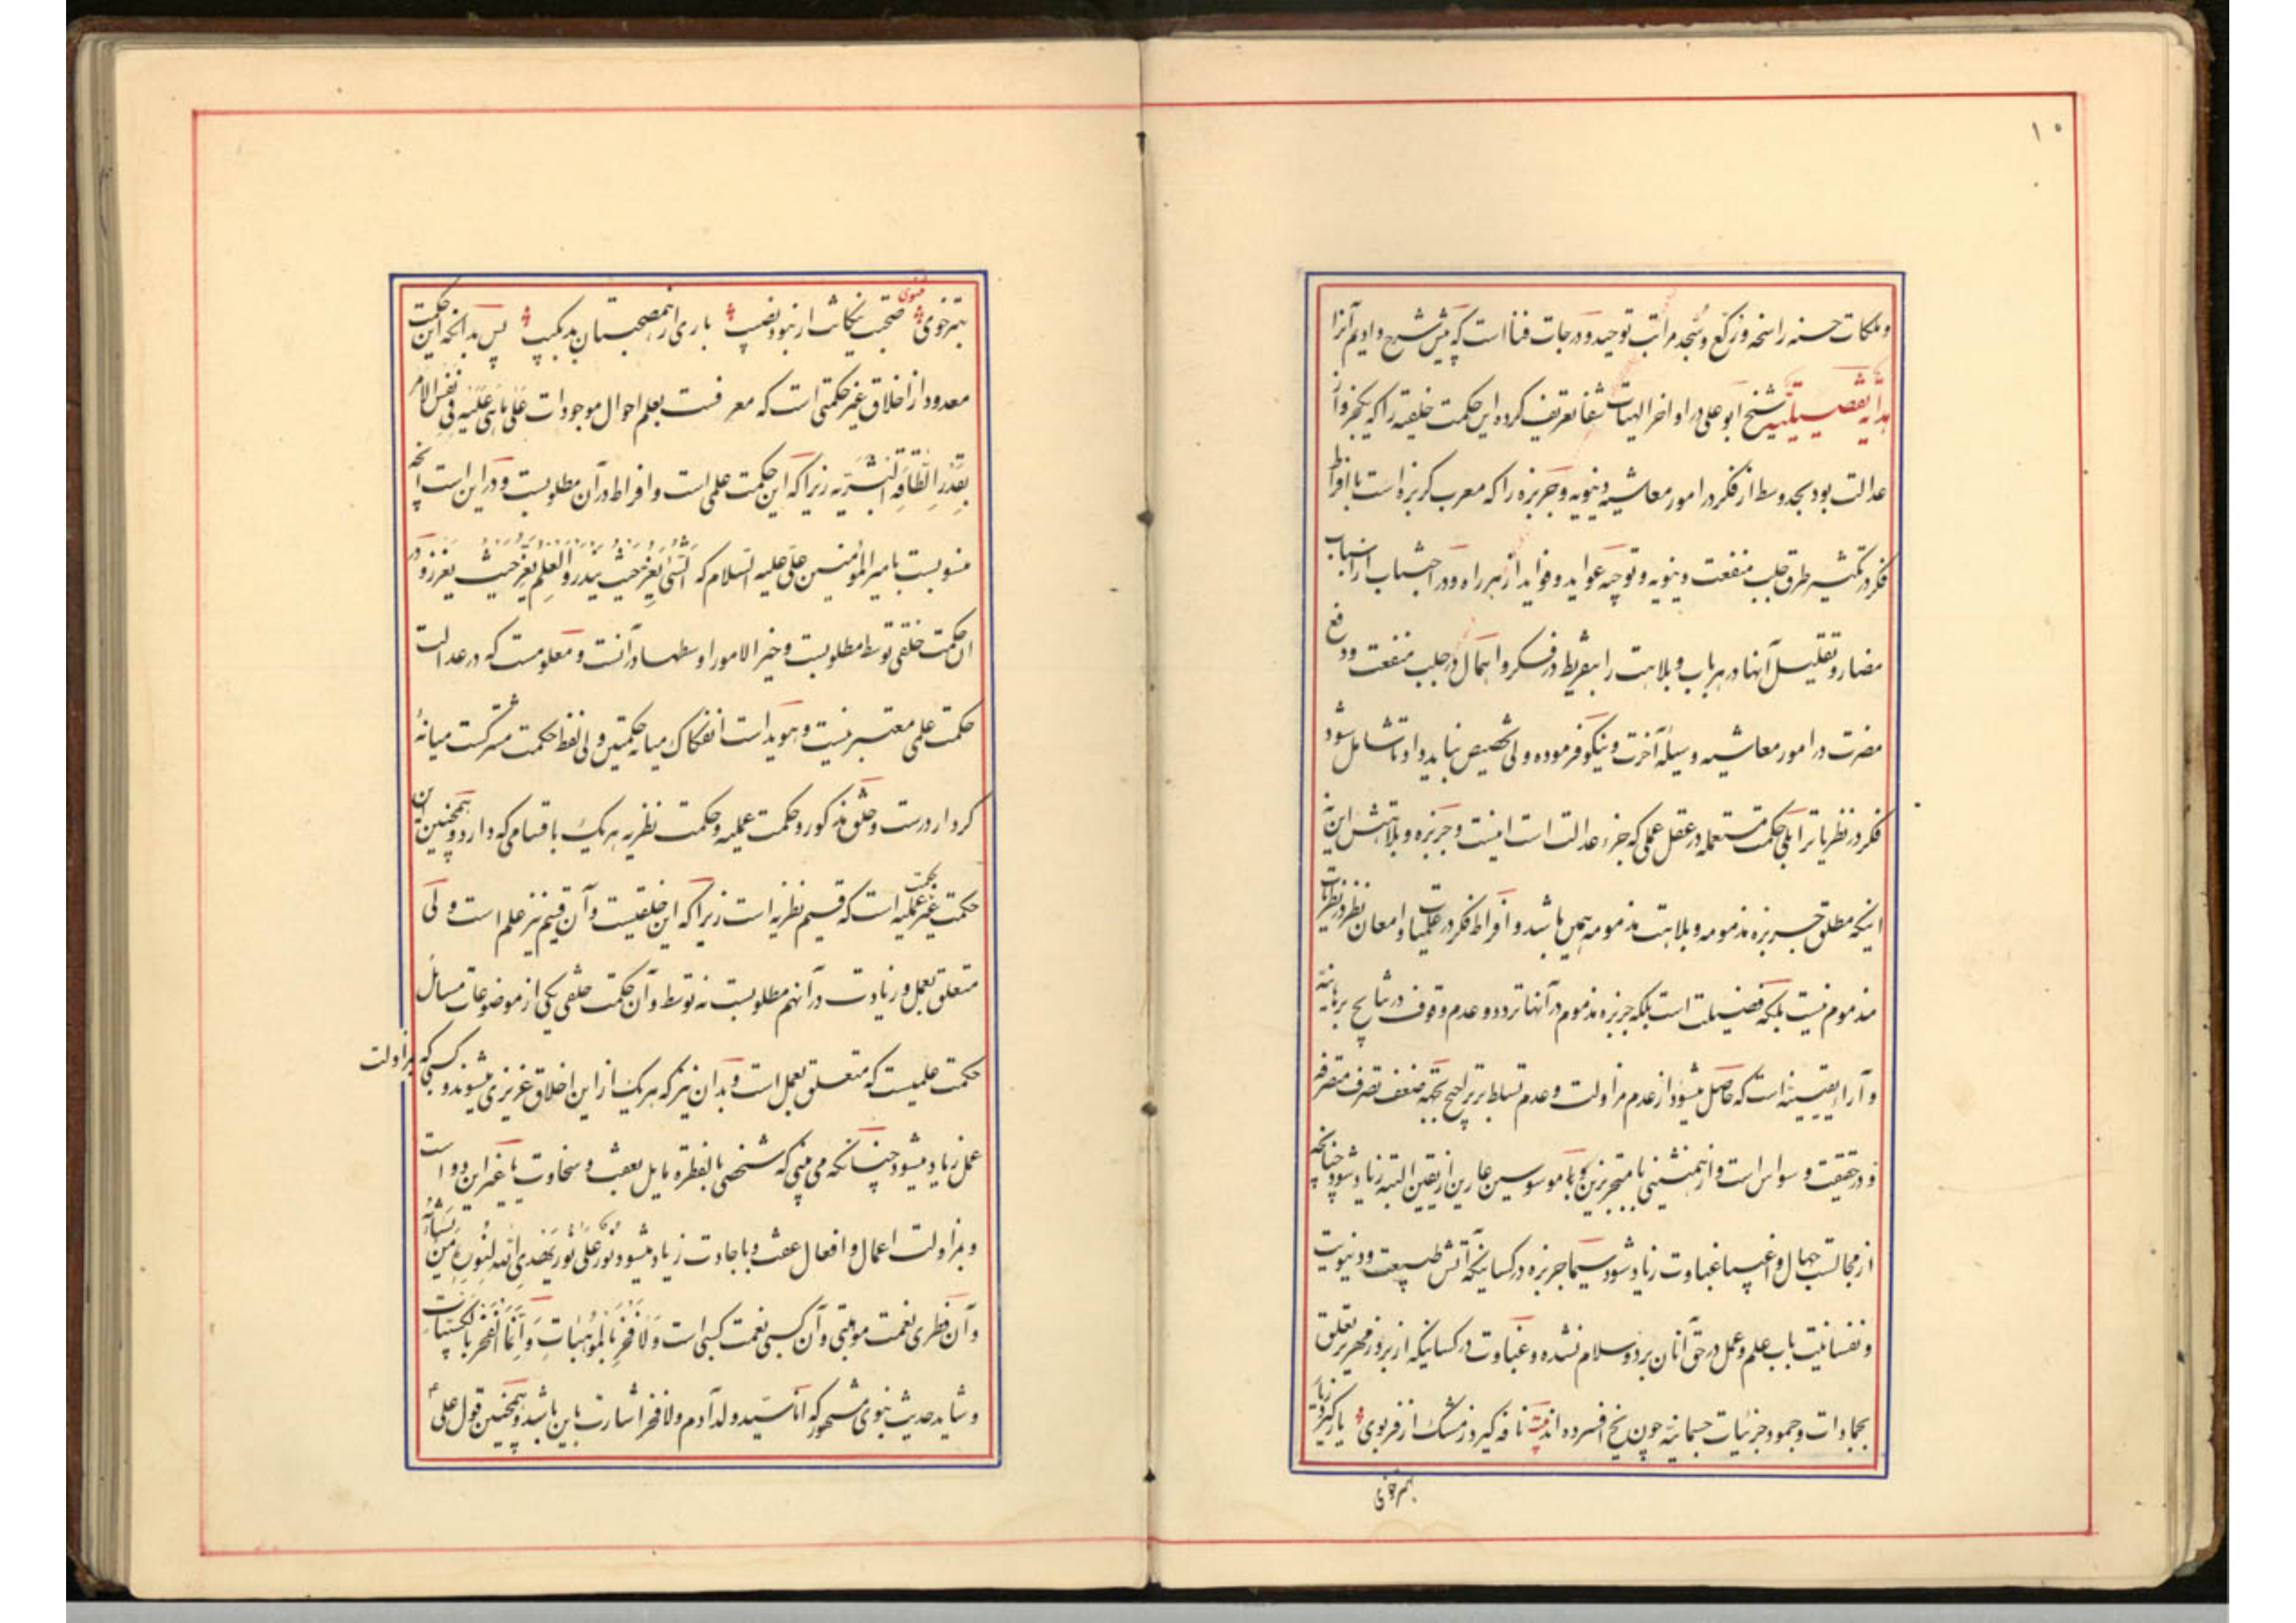 ۱۰
و ملکات حسنه راسخه و رکع و سجد مراتب توحید و درجات فنا است که پیش شرح دادیم آنرا
هدایة تفصیلیة شیخ ابو علی در اواخر الهیات شفا تعریف کرده این حکمت خلقیه را که یکجزو از
عدالت بود بحد وسط از فکر در امور معاشیه دنیویه و جربزه را که معرب کربزه است بافراط
فکر در تکثیر طرق جلب منفعت دنیویه و توجیه عواید و فواید از هر راه و در احتساب ارباب
مضار و تقلیل آنها در هر باب و بلاهت را بتفریط در فکر و اهمال در جلب منفعت و دفع
مضرت در امور معاشیه وسیلهٔ آخرت و نیکو فرموده ولی تخصیص نباید داد تا شامل شود
فکر در نظریاترا بلی حکمت مستعمله در عقل عملی که جزء عدالت است اینست و جربزه و بلاهتش این نه
اینکه مطلق جربزه مذمومه و بلاهت مذمومه همین باشد و افراط فکر در علمیات و امعان نظر در نظریات
مذموم نیست بلکه فضیلت است بلکه جربزه مذموم در آنها تردد و عدم وقوف در نتایج برهانیه
و آراء یقینیه است که حاصل میشود از عدم مزاولت و عدم تسلط بر ترجیح بجهة ضعف تصرف متصرفه
و در حقیقت وسواس است و از همنشینی با متجربزین و با موسوسین عارین از یقین البته زیاد شود چنانچه
از مجالست جهال و اغبیا غباوت زیاد شود سیما جربزه در کسانیکه آتش طبیعت و دنیویت
و نفسانیت باب علم و عمل در حق آنان برد و سلام نشده و غباوت در کسانیکه از برد زمهریر تعلق
بجمادات و جمود جزئیات جسمانیه چون یخ افسرده اند بیت نافه گیرد ز مشک از فر بوی یار گیرد ز یار
بهتر خوی
بهتر خوی مثنوی صحبت نیکانت ار نبود نصیب باری از همصحبتان بد بکیب پس بدانکه این حکمت
معدود از اخلاق غیر حکمتی است که معرفست بعلم احوال موجودات عَلی مَاهِیَ عَلَیه فی نفس الامر
بِقَدْرِ الطّاقَةِ البَشَریّه زیرا که این حکمت علمی است و افراط در آن مطلوبست و در این است آنچه
منسوبست بامیر المؤمنین علی علیه السلام که الشّیٔ یعزّ حیث یندر و العلم یعزّ حیث یغزر و در
ان حکمت خلقی توسط مطلوبست و خیر الامور اوسطها در آنست و معلومست که در عدالت
حکمت علمی معتبر نیست و هویداست انفکاک میانه حکمتین ولی لفظ حکمت مشترکست میانهٔ
کردار درست و خلق مذکور و حکمت عملیه و حکمت نظریه هر یک باقسامی که دارد و همچنین این
حکمت غیر حکمت عملیه است که قسیم نظریه است زیرا که این خلقیست و آن قسیم نیز علم است ولی
متعلق بعمل و زیادت در آنهم مطلوبست نه توسط و آن حکمت خلقی یکی از موضوعات مسائل
حکمت علمیست که متعلق بعمل است و بدان نیز که هر یک از این اخلاق غریزی میشوند و کسبی که بمزاولت
عمل زیاد میشود چنانکه می بینی که شخصی بالفطره مایل بعفت و سخاوت یا غیر این دو است
و بمزاولت اعمال و افعال عفت و با جادت زیاد میشود نور علی نور یهدی الله لنوره من یشاء
و آن فطری نعمت موهبتی و آن کسبی نعمت کسبی است وَلا فخر بالموهبات وَ اِنّما الفخر بالکسبیّات
و شاید حدیث نبوی مشهور که انا سید ولد آدم و لا فخر اشارت باین باشد و همچنین قول علی ع